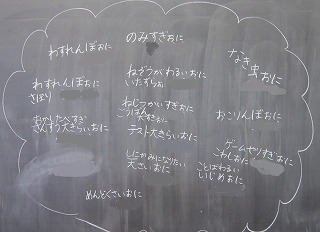 のみすぎおに
わすれんぼおに
なき虫おに
わすれんぼおに
さぼり
ねぞうがわるいおに
いたずらお
おこりんぼおに
おかしたべすぎ
さんすう大きらいおに
大すきおに
テスト大きらいおに
ゲームやりすぎおに
こわしおに
ことばわるい
いじめおに
大さいおに
めんどくさいおに